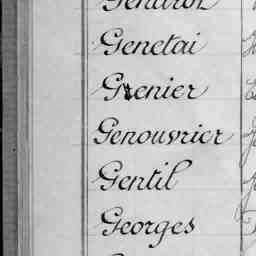 Genetai
Grenier
Genouvrier
Gentil
Georges